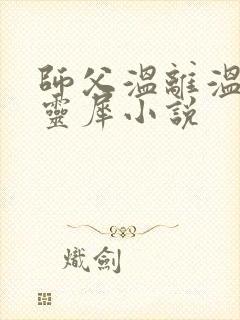 師父溫離溫
靈犀小說
熾劍